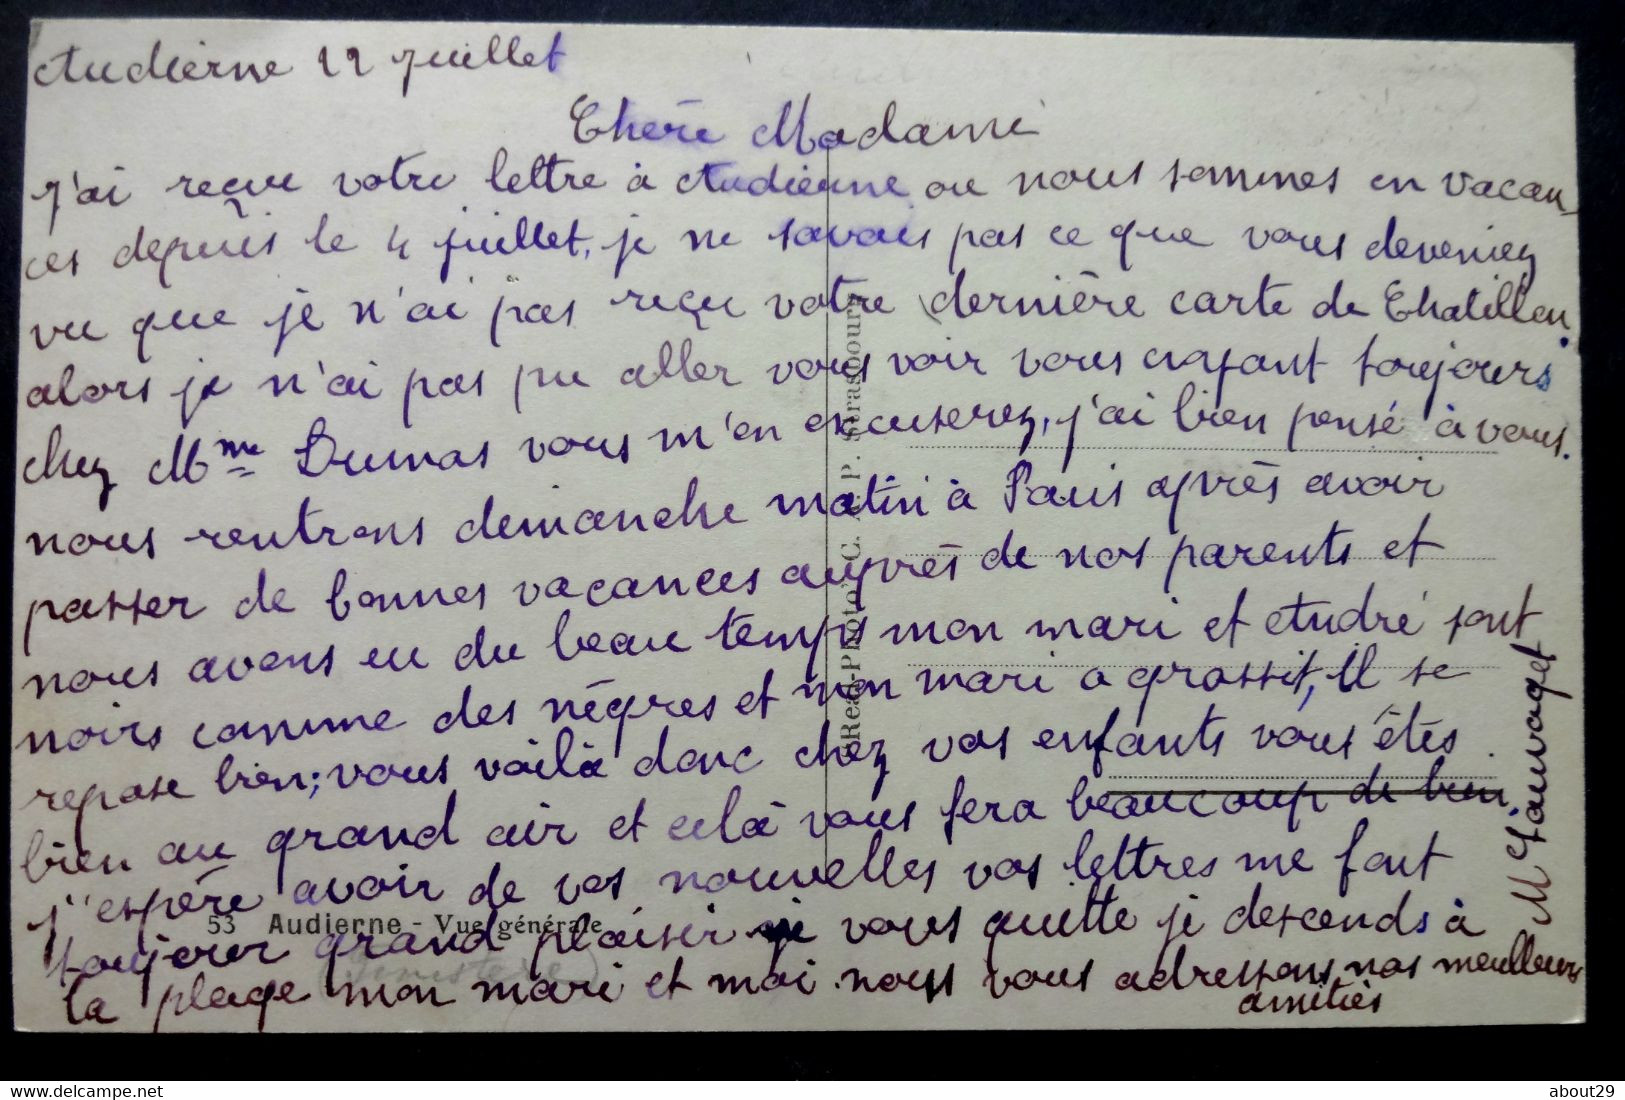 Audierne 22 juillet
Chère Madame
j'ai reçue votre lettre à Audierne ou nous sommes en vacan-
ces depuis le 4 juillet, je ne savais pas ce que vous deveniez
vu que je n'ai pas reçu votre dernière carte de Chatillon.
alors je n'ai pas pu aller vous voir vous croyant toujours
chez Mme Dumas vous m'en excuserez, j'ai bien pensé à vous.
nous rentrons demanche matin à Paris après avoir
passer de bonnes vacances auprès de nos parents et
nous avons eu du beau temps mon mari et André sont
noirs comme des nègres et mon mari a grossit, il se
repose bien; vous voilà donc chez vos enfants vous êtes
bien au grand air et celà vous fera beaucoup de bien.
j'espère avoir de vos nouvelles vos lettres me font
toujour grand plaisir je vous quitte je descends à
la plage mon mari et moi nous vous adressons nos meilleurs
amitiés
M Sauvaget
53 Audierne - Vue générale
(Finistère)
Real-Photo C. A. P. Strasbourg
about29